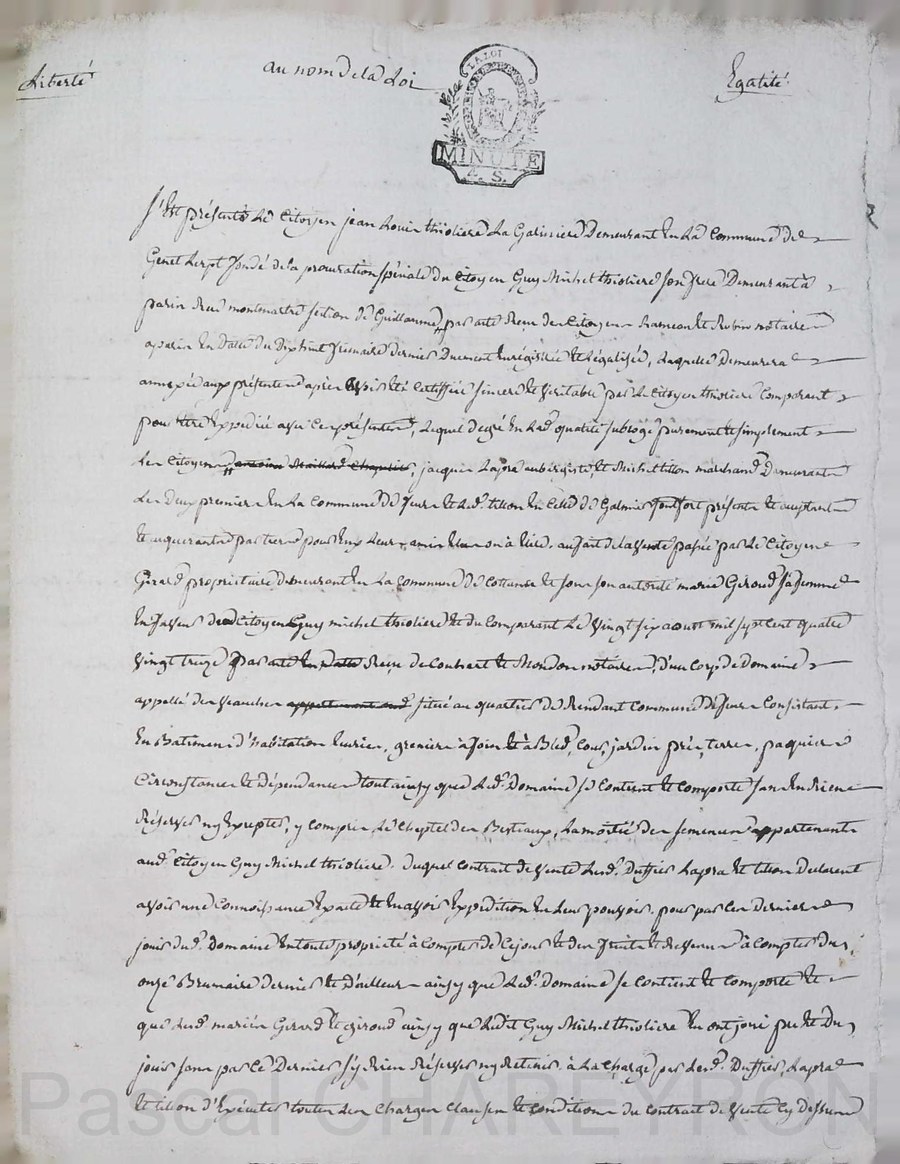 Liberté au nom de la Loi Egalité
LA LOI
MINUTE
4. S.
s'est présenté le Citoyen jean Louis thiolière La Galissière Demeurant En La Commune de
Genest Lerpt fondé de la procuration spéciale du Citoyen Guy Michel thioliere son frere Demeurant à
paris Rue montmartre section de Guillaume, par acte Reçu des Citoyens Rameau et Robin notaires
a paris En Datte du Dix huit frimaire dernier Duement Enrégistrée et Légalisée, Laquelle Demeurera
annexée aux présentes après avoir été Certiffiée sincere et véritable par Le Citoyen thioliere Comparant
pour être Expédiée avec Ces présentes, Lequel de gré En Lad. qualité subroge purement et simplement
Les Citoyens jacques Lapra aubergiste, et Michel tilion marchand Demeurants
Les Deux premiers En La Commune de et Led. tilion En Celle de Galmier fontfort présents et acceptants
et acquerants par tiers pour Eux Leurs amis Elus ou à Elire, au fait de La vente passée par Le Citoyen
Girard propriétaire demeurant En La Commune de et sous son autorité marie Giroud sa femme
En faveur dud. Citoyen Guy michel thioliere et du Comparant Le vingt six aoust mil sept cent quatre
vingt treize Reçu de et notaires, d'un Corps de Domaine
appellé des situé au quartier de Commune de Consistant,
En Batiments d'habitation Ecuries, greniers à foin et à Bled, Cour, jardin prés, terres, paquiers
Circonstances et Dépendances tout ainsy que Led. Domaine se Contient et Comporte sans En Rien
Réserver ny Excepter, y compris Le Cheptel des Bestiaux, La moitié des semences appartenant
aud. Citoyen Guy Michel thioliere. Duquel Contrat de vente Lesd. Duffier Lapra et tilion Declarent
avoir une Connoissance Exacte et En avoir Expédition En Leur pouvoir. pour par Ces Derniers
jouir dud. Domaine En toute propriété à Compter de Ce jour et des fruits et Revenus à Compter du
onze Brumaire dernier et d'ailleurs ainsy que Led. Domaine se Contient et Comporte et
que Lesd. mariés Girard et giroud ainsy que Ledit Guy Michel thioliere En ont joui pu et Du
jouir sans par Ce Dernier s'y Rien Réserver ny Retenir. à La Charge par Lesd. Duffier, Lapra
et tilion d'Exécuter toutes Les Charges Clauses et Conditions du Contrat de vente Cy dessus
Pascal CHAREYRON